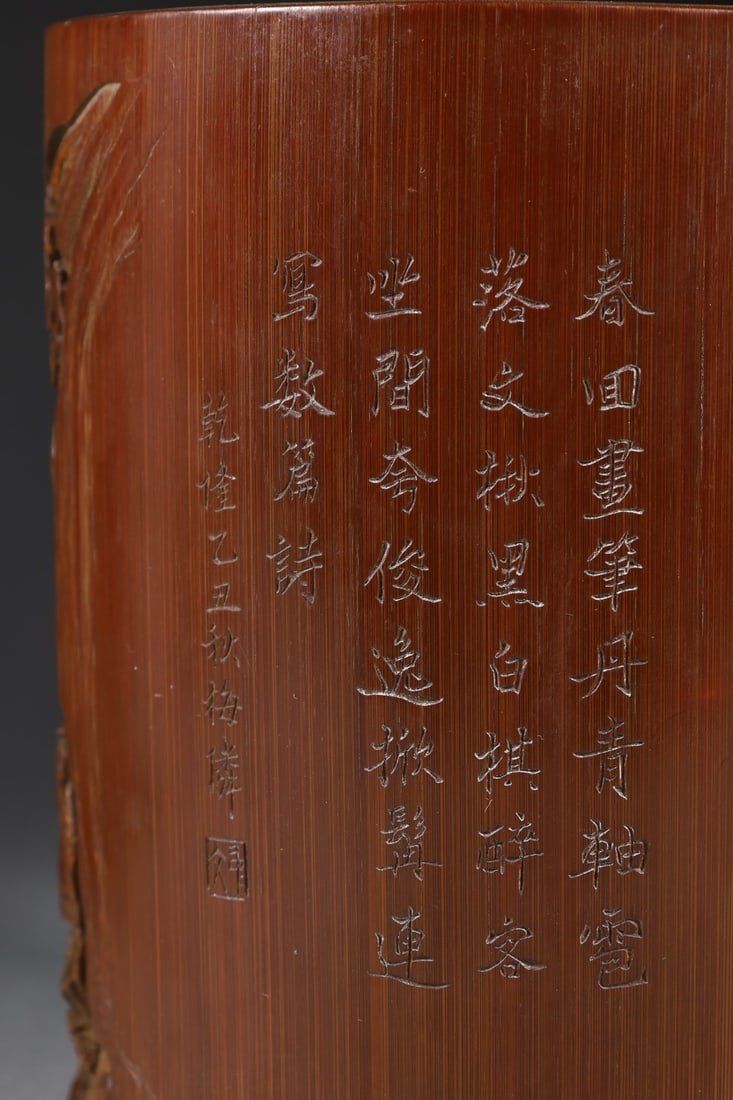 春回畫筆丹青軸雹
落文楸黑白棋醉客
坐間夸俊逸掀髯連
寫數篇詩
乾隆乙丑秋梅鄰